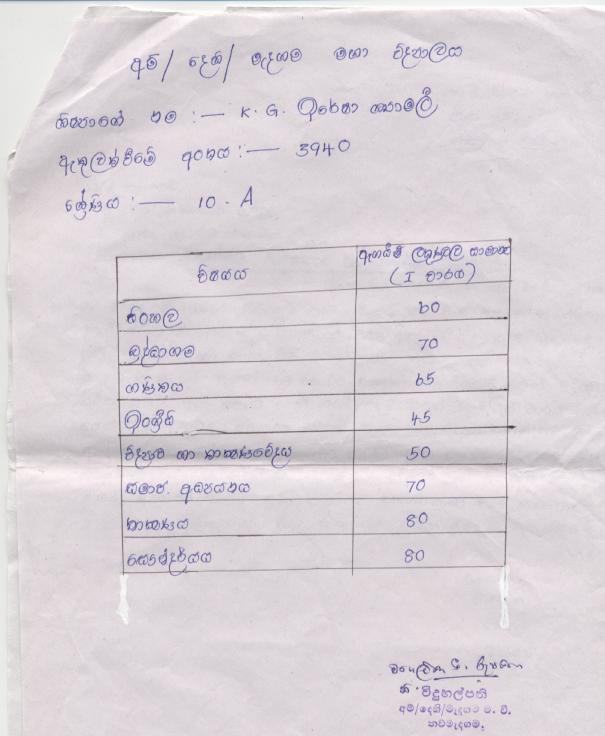 අම්/ දෙහි/ මැදගම මහා විද්‍යාලය
ශිෂ්‍යාගේ නම :— K. G. ඉරේෂා ශ්‍යාමලී
ඇතුලත්වීමේ අංකය :— 3940
ශ්‍රේණිය :— 10 - A
විෂයය ඇගයීම් ලකුණුවල සාමාන්‍ය
(I වාරය)
සිංහල 60
බුද්ධාගම 70
ගණිතය 65
ඉංග්‍රීසි 45
විද්‍යාව හා තාක්ෂණවේදය 50
සමාජ අධ්‍යයනය 70
තාක්ෂණය 80
සෞන්දර්යය 80
නි. විදුහල්පති
අම්/දෙහි/මැදගම ම. වි.
නවමැදගම.